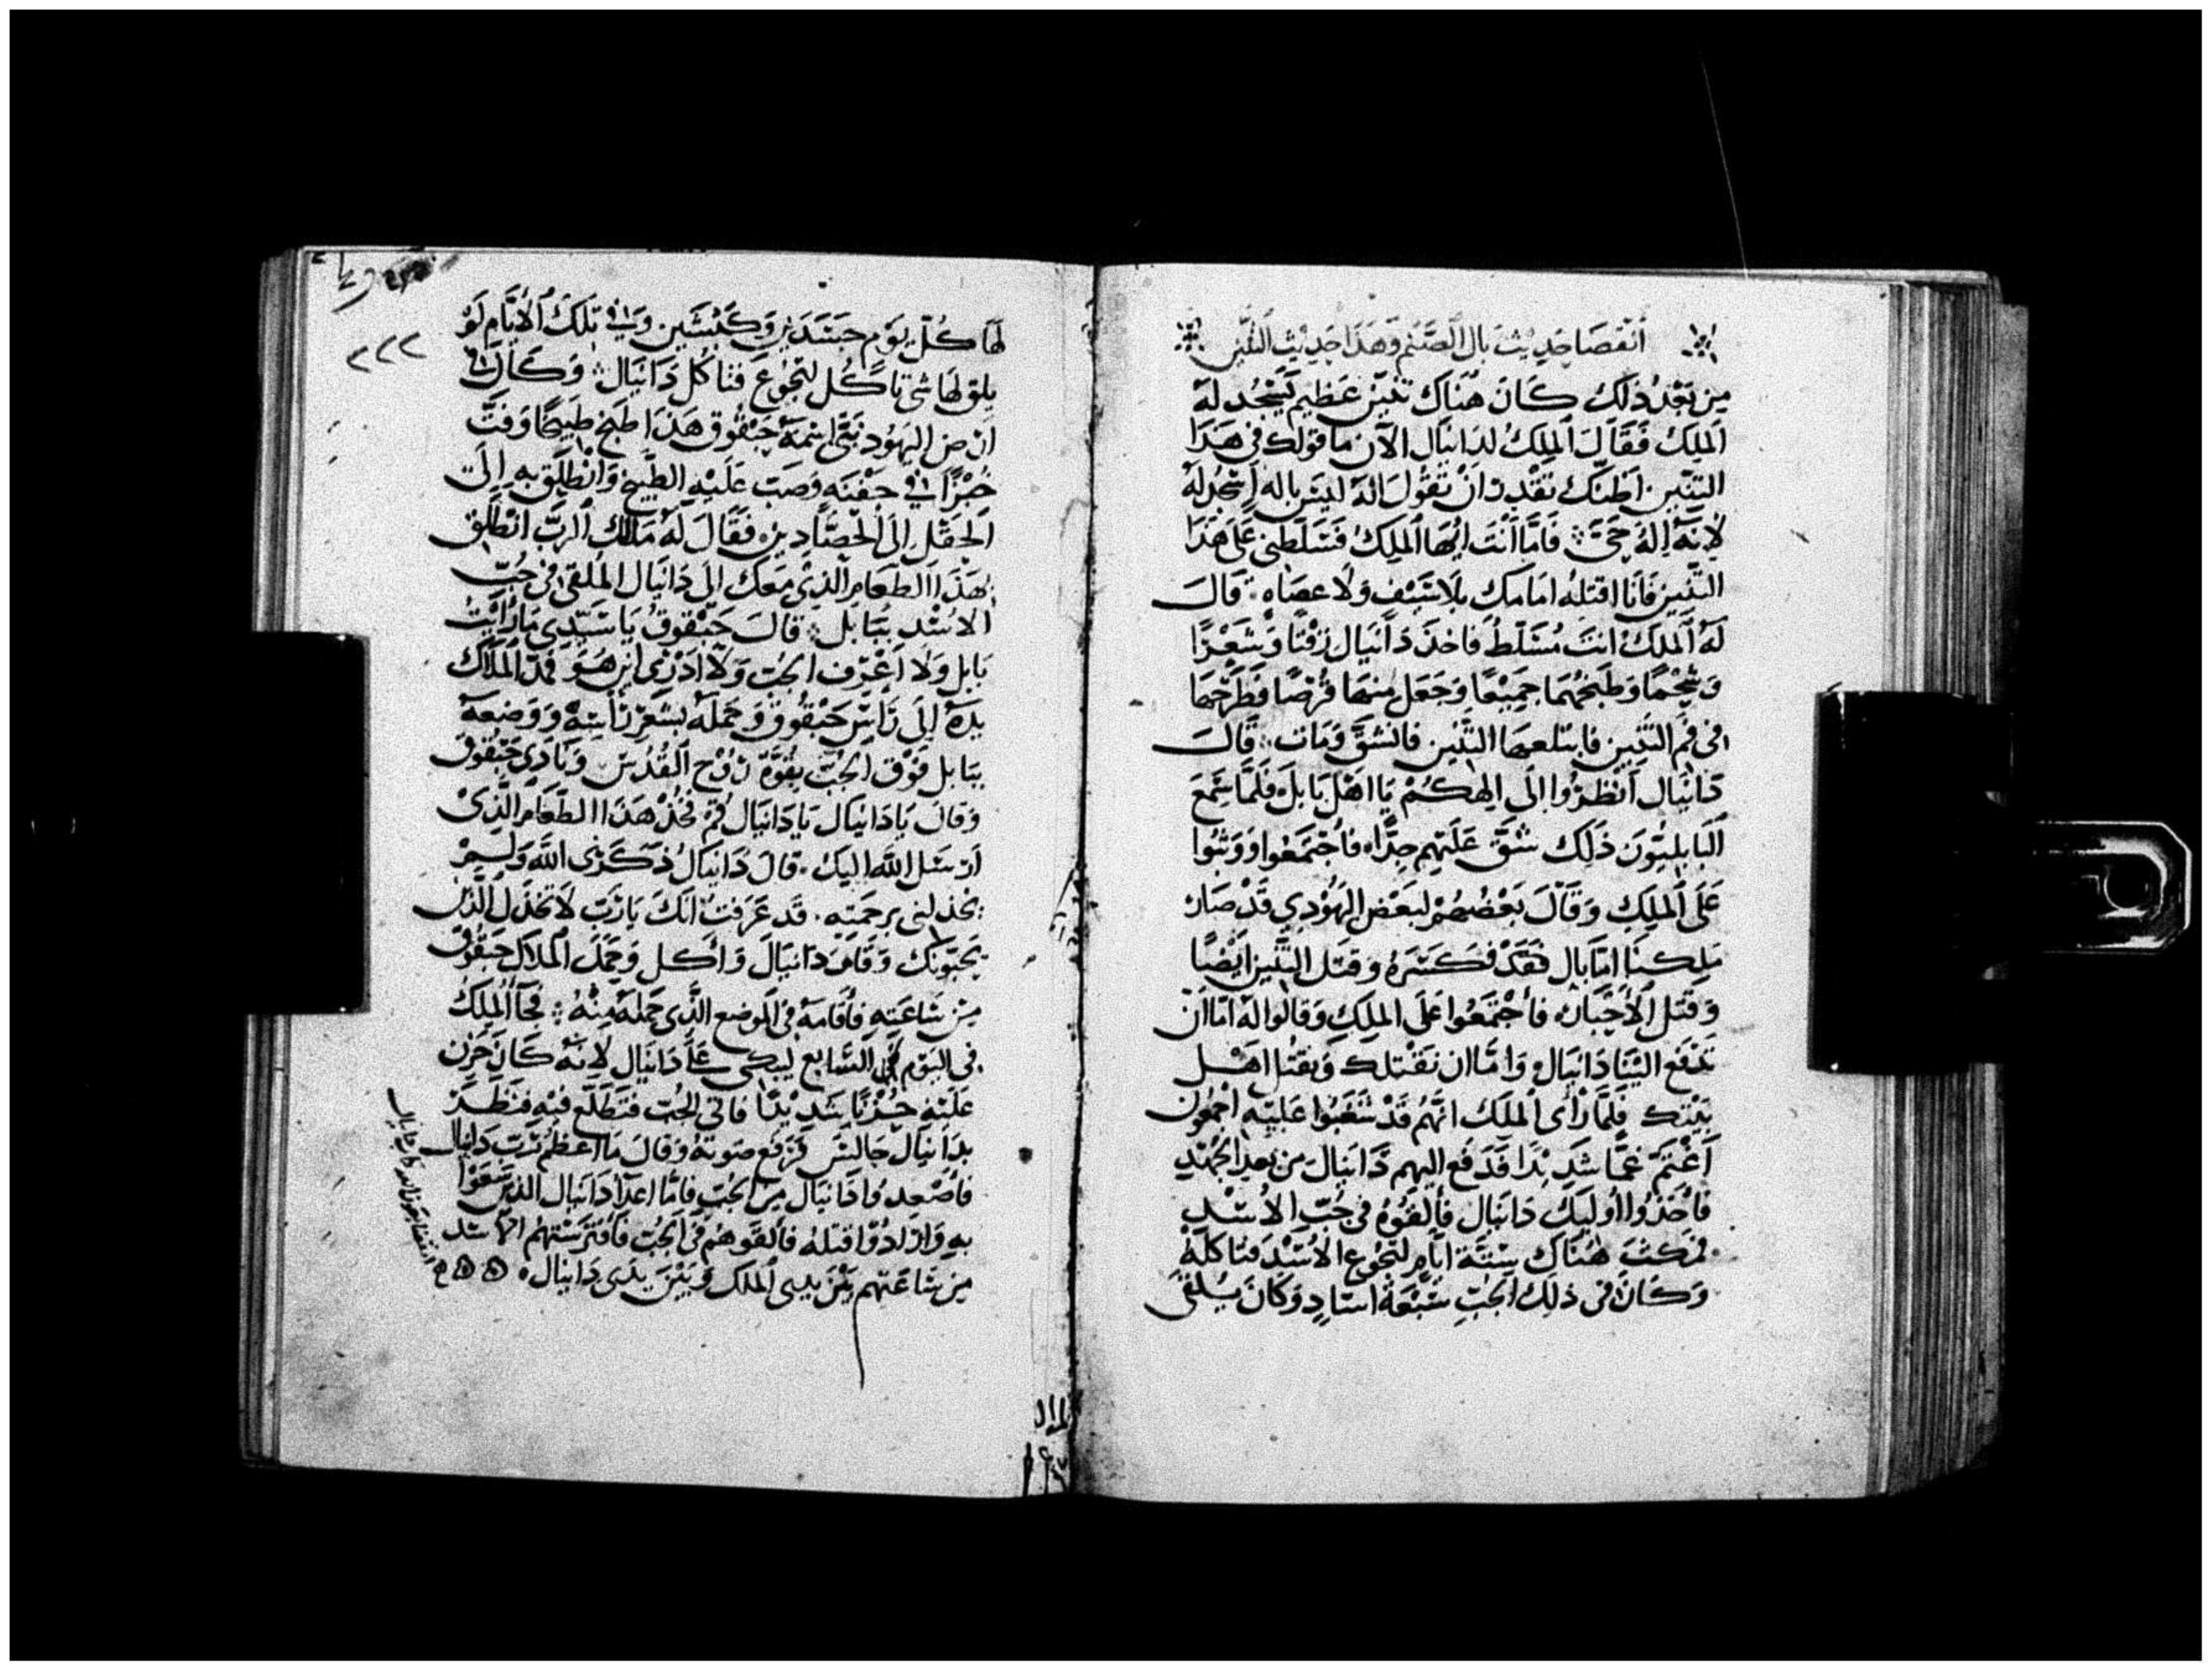 انقضا حديث بال الصنم وهذا حديث التنين
مِن بَعْدُ ذلِكَ كَانَ هُنَاك تنين عَظِيم يَسْجُد لَهُ
اَلملِكُ فَقَالَ اَلملِكُ لدَانيَال الآن ما قولك في هَذَا
التنين اَظنّك تَقْدِر اَنْ تَقُول انهُ ليسَ باله اسْجُد لَهُ
لانَّهُ اِلهٌ حَيّ فَامَّا اَنْتَ ايُّهَا اَلملِكُ فَسَلّطنِي عَلَى هَذَا
التنين فَانَا اقتلهُ امَامك بِلا سَيْف وَلا عصَاه قَالَ
لهُ الملكُ انتَ مُسَلّط فاخذ دَانيَال زِفْتًا وَشَعْرًا
وَشَحْمًا وَطبَخهُمَا جَمِيْعًا وَجَعَل منهَا قُرْصًا فطَرَحْهَا
في فَم التنين فابتلعهَا التنين فانشقَّ وَمَات قَالَ
دَانيَال اَنْظرُوا الَى الهكُمْ يَا اهْل بَابلَ فَلَمَّا سَمعَ
اَلبَابليُّون ذَلِك شَقَّ عَلَيْهم جِدًّا فَاَجْتَمَعُوا وَوَثبُوا
عَلَى اَلملِكِ وَقَالَ بَعْضُهُمْ لبَعْض اليَهُوْدِي قَدْ صَار
مَلِكنَا امَّا بال فَقَدْ فَكَسّرهُ وَقتَل التنين ايْضًا
وَقتَل اَلأَحْبَار فأَجْتَمَعُوا عَلَى الملِكِ وَقالوا لهُ امَّا اَنْ
تَدْفَع اليْنَا دَانيَال وَامَّا ان نَقْتلك وَنقتُل اهْل
بَيْتك فَلَمَّا رَأَى الملِك انَّهُمْ قَدْ شَغَبُوا عَليْه اجمعُون
اَغْتَمَّ غمًّا شَدِيْدًا فدَفع اليهم دَانيَال من بعد الجهْدِ
فأخَذوا اُوليك دَانيَال فأَلقَوْهُ في جُبّ الاُسْد
فمكث هُنَاك ستّة ايّام لتجُوع الاُسْد فتاكلهُ
وَكَانَ في ذلك الجبِّ سَبْعَة اسَادٍ وَكَانَ يُلقَى
٢٢٢
لهَا كُلّ يَوْمٍ جَسَدَيْن وَكَبْشَيْن وَفي تلكَ الأيَّام لَمْ
يلق لهَا شي تاكُل لتجُوعَ فتاكُل دَانيَال وَكَانَ في
ارْض اليَهُود نَبيّ اسْمهُ حَبقُوق هَذَا طبَخ طَبيخًا وَفتَّ
خبْزًا في جَفْنَه وَصَبَ عَلَيْهِ الطَّبيخ وَانْطَلَق بهِ اِلَى
اَلحَقْل اِلَى الحَصَّادِين فَقَالَ لَهُ مَلاك اَلربّ انْطَلِق
بهَذَا الطعَام الذِي مَعَك الى دَانيَال المُلقى في جُبّ
الاُسْد ببَابل قالَ حَبْقوقُ يَا سَيّدِي مَا رَأيْتُ
بَابل وَلا اَعْرف الجُبّ وَلا ادْرِي اين هُوَ فمدّ الملاك
يدهُ اِلَى رَأس حَبْقُوق وَحَملهُ بشعْر رَأسِهِ وَوَضعهُ
ببَابل فَوْق الجُبّ بقُوَّة رُوْح القُدُس وَنَادى حَبقوق
وَقالَ يَا دَانيَال يَا دَانيَال قُمْ فخُذ هَذَا الطعَام الَّذي
اَرْسَل اللهُ اليكَ قالَ دَانيَالُ ذكَرَني اللهُ وَلَمْ
يخذلني برحمَتِه قد عَرَفتُ انّكَ يَا رَبّ لا تخذل الذين
يحبّونك وَقَامَ دَانيَال وَأكل وَحَمَل الملاك حَبقوق
مِن سَاعَتِهِ فأقامَهُ في اَلموضع الَّذي حَملَهُ مِنْهُ فجَآء اَلملِكُ
في اليَوم السَّابع ليبكي عَلى دَانيَال لانَّهُ كَان حَزِن
عَليْه حُزْنًا شدِيْدًا فاتى الجُبّ فتَطلّع فيْه فنظر
بدَانيَال جَالسَ فرَفع صَوتهُ وَقالَ مَا اعظم رَبّ دَانيال
فاصْعدوا دَانيَال مِن الجُبّ فامَّا اعدَا دَانيَال الذين سَعَوْا
به وَارَادُوا قتلهُ فألقوهُم في الجُبّ فأفترَسَتهُم الاُسْد
مِن سَاعَتهم بَيْنَ يدي الملك وَبَيْنَ يدَي دَانيَال